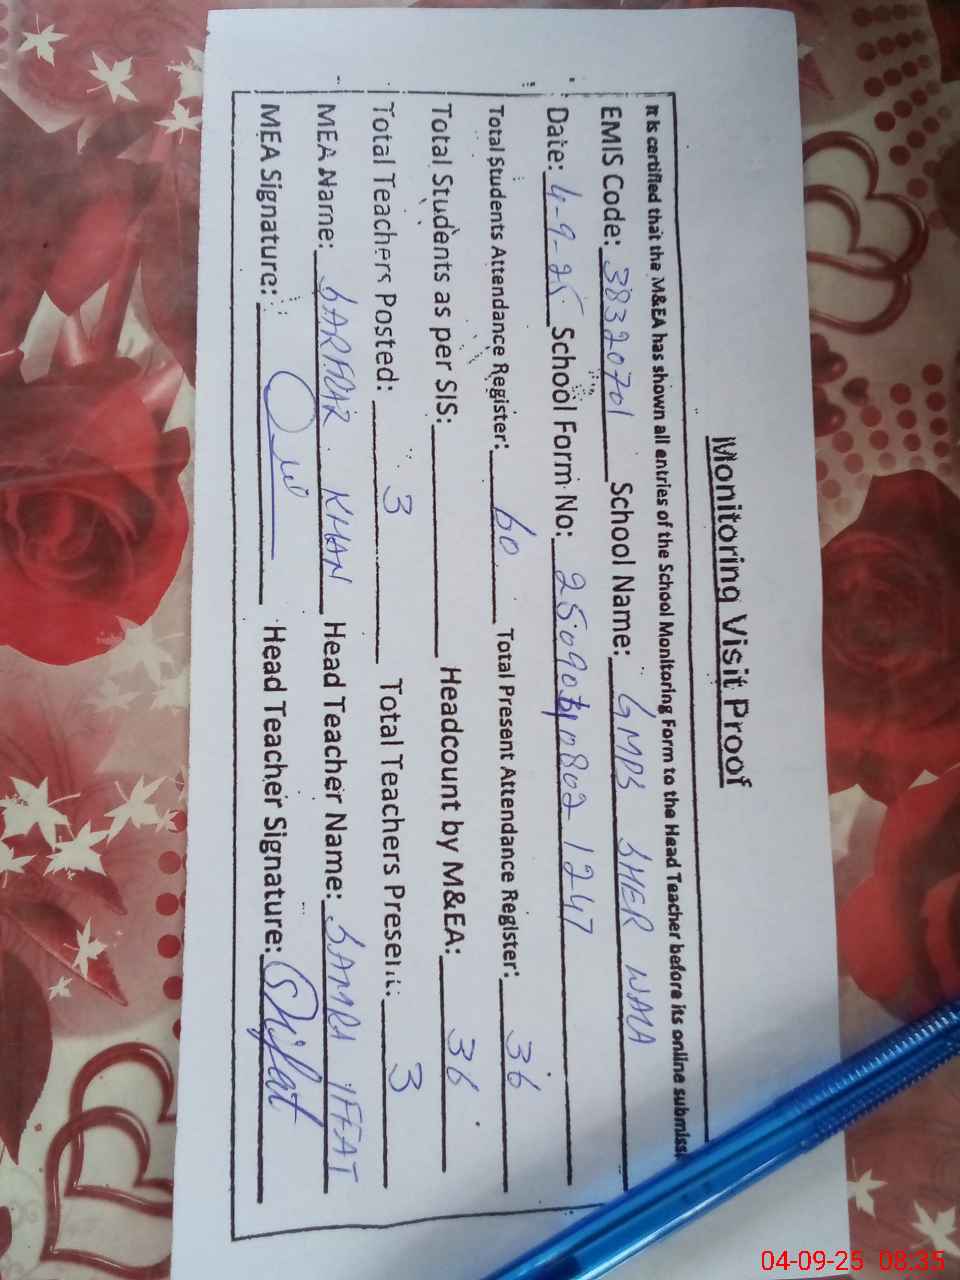 Monitoring Visit Proof
It is certified that the M&EA has shown all entries of the School Monitoring Form to the Head Teacher before its online submiss
EMIS Code: 38320701 School Name: GMPS SHER WALA
Date: 4-9-25 School Form No: 250904 0802 1247
Total Students Attendance Register: 60 Total Present Attendance Register: 36
Total Students as per SIS: Headcount by M&EA: 36
Total Teachers Posted: 3 Total Teachers Present: 3
MEA Name: SARFRAZ KHAN Head Teacher Name: SAMRA IFFAT
MEA Signature: Head Teacher Signature: Iffat
04-09-25 08:35